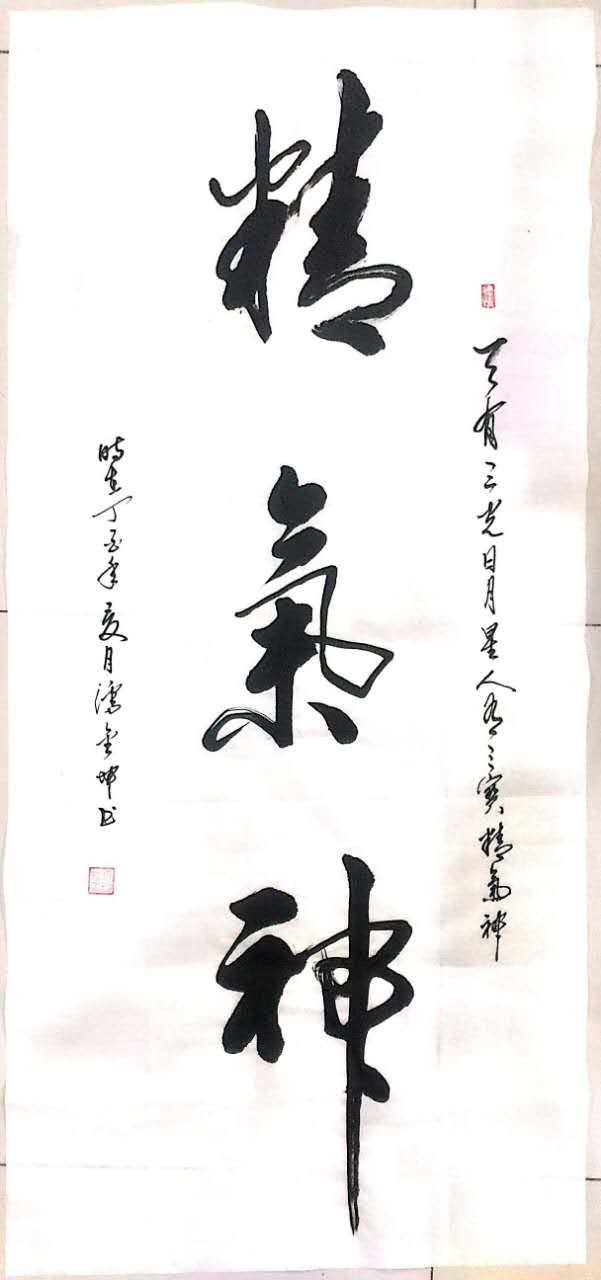 天有三光日月星人有三寶精氣神
精氣神
時在丁酉年夏月金坤书